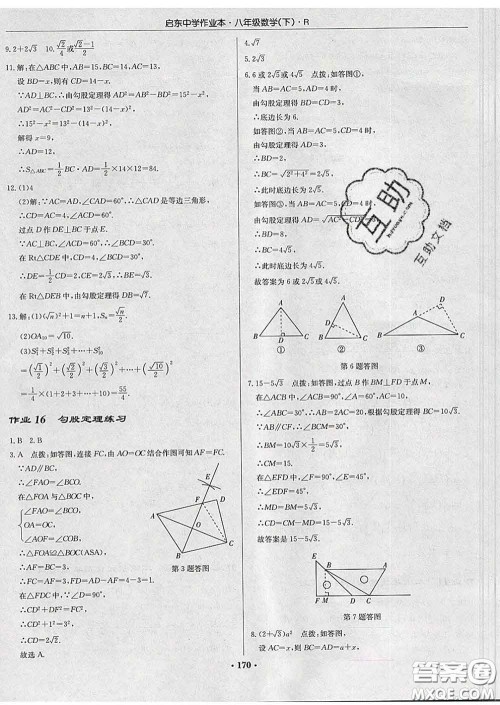 启东中学作业本·八年级数学(下)·R
9. 2+√3 10. √2/4 或 (√2-1)/2
11. 解:在△ABC中,AB=15,BC=14,AC=13,
设BD=x,则有CD=14-x.
∵AD⊥BC,∴由勾股定理得AD²=AB²-BD²=15²-x²,
AD²=AC²-CD²=13²-(14-x)²,
∴15²-x²=13²-(14-x)²,
解得x=9,
∴AD=12,
∴S△ABC=1/2 BC·AD=1/2×14×12=84.
12. (1)4
(2)∵AC=AD,∠CAD=60°,∴△CAD是等边三角形,
∴CD=AC=4,∠ACD=60°.
过点D作DE⊥BC于点E.
∵AC⊥BC,∠ACD=60°,∴∠BCD=30°.
在Rt△CDE中,CD=4,∠BCD=30°,
∴DE=1/2 CD=2,CE=2√3,∴BE=√3.
在Rt△DEB中,由勾股定理得DB=√7.
13. 解:(1)(√n)²+1=n+1,Sn=√n/2.
(2)OA₁₀=√10.
(3)S₁²+S₂²+S₃²+…+S₁₀²
=(√1/2)²+(√2/2)²+(√3/2)²+…+(√10/2)²
=1/4×(1+2+3+…+10)=55/4.
作业16 勾股定理练习
1. B 2. B
3. A 点拨:如答图,连接FC,由AO=OC结合作图可知AF=FC.
∵AD∥BC,
∴∠FAO=∠BCO.
在△FOA与△BOC中,
∠FAO=∠BCO,
OA=OC,
∠AOF=∠COB,
∴△FOA≌△BOC(ASA),
∴AF=BC=3,
∴FC=AF=3,FD=AD-AF=4-3=1.
在△FDC中,∵∠D=90°,
∴CD²+DF²=FC²,
∴CD²+1²=3²,
∴CD=2√2.
故选A.
第3题答图
4. √7
5. 2√3
6. 6或2√5或4√5 点拨:如答图①,
当AB=AC=5,AD=4时,
由勾股定理得BD=CD=3,
∴底边长为6.
如答图②,当AB=AC=5,CD=4时,
由勾股定理得AD=3,
∴BD=2,
∴BC=√(2²+4²)=2√5,
∴此时底边长为2√5.
如答图③,当AB=AC=5,CD=4时,
由勾股定理得AD=√(AC²-CD²)
∴BD=8,
∴BC=4√5,
∴此时底边长为4√5.
故答案为6或2√5或4√5.
① ② ③
第6题答图
7. 15-5√3 点拨:如答图,过点B作BM⊥FD于点M,
在△ACB中,∵∠ACB=90°,∠A=60°,AC=10,
∴∠ABC=30°,∴AB=2AC=20,根据勾股定理得BC=10√3.
∵AB∥CF,∴∠BCM=∠ABC=30°,
∴BM=10√3×1/2=5√3,
∴CM=15.
在△EFD中,
∵∠F=90°,∠E=45°,∴∠EDF=45°,
∴MD=BM=5√3,
∴CD=CM-MD=15-5√3.
故答案是15-5√3.
第7题答图
8. (2+√3)a² 点拨:如答图,
设AC=x,则BD=AC=a+x,
· 170 ·
互助
互助文档
答案圈
MXQE.COM